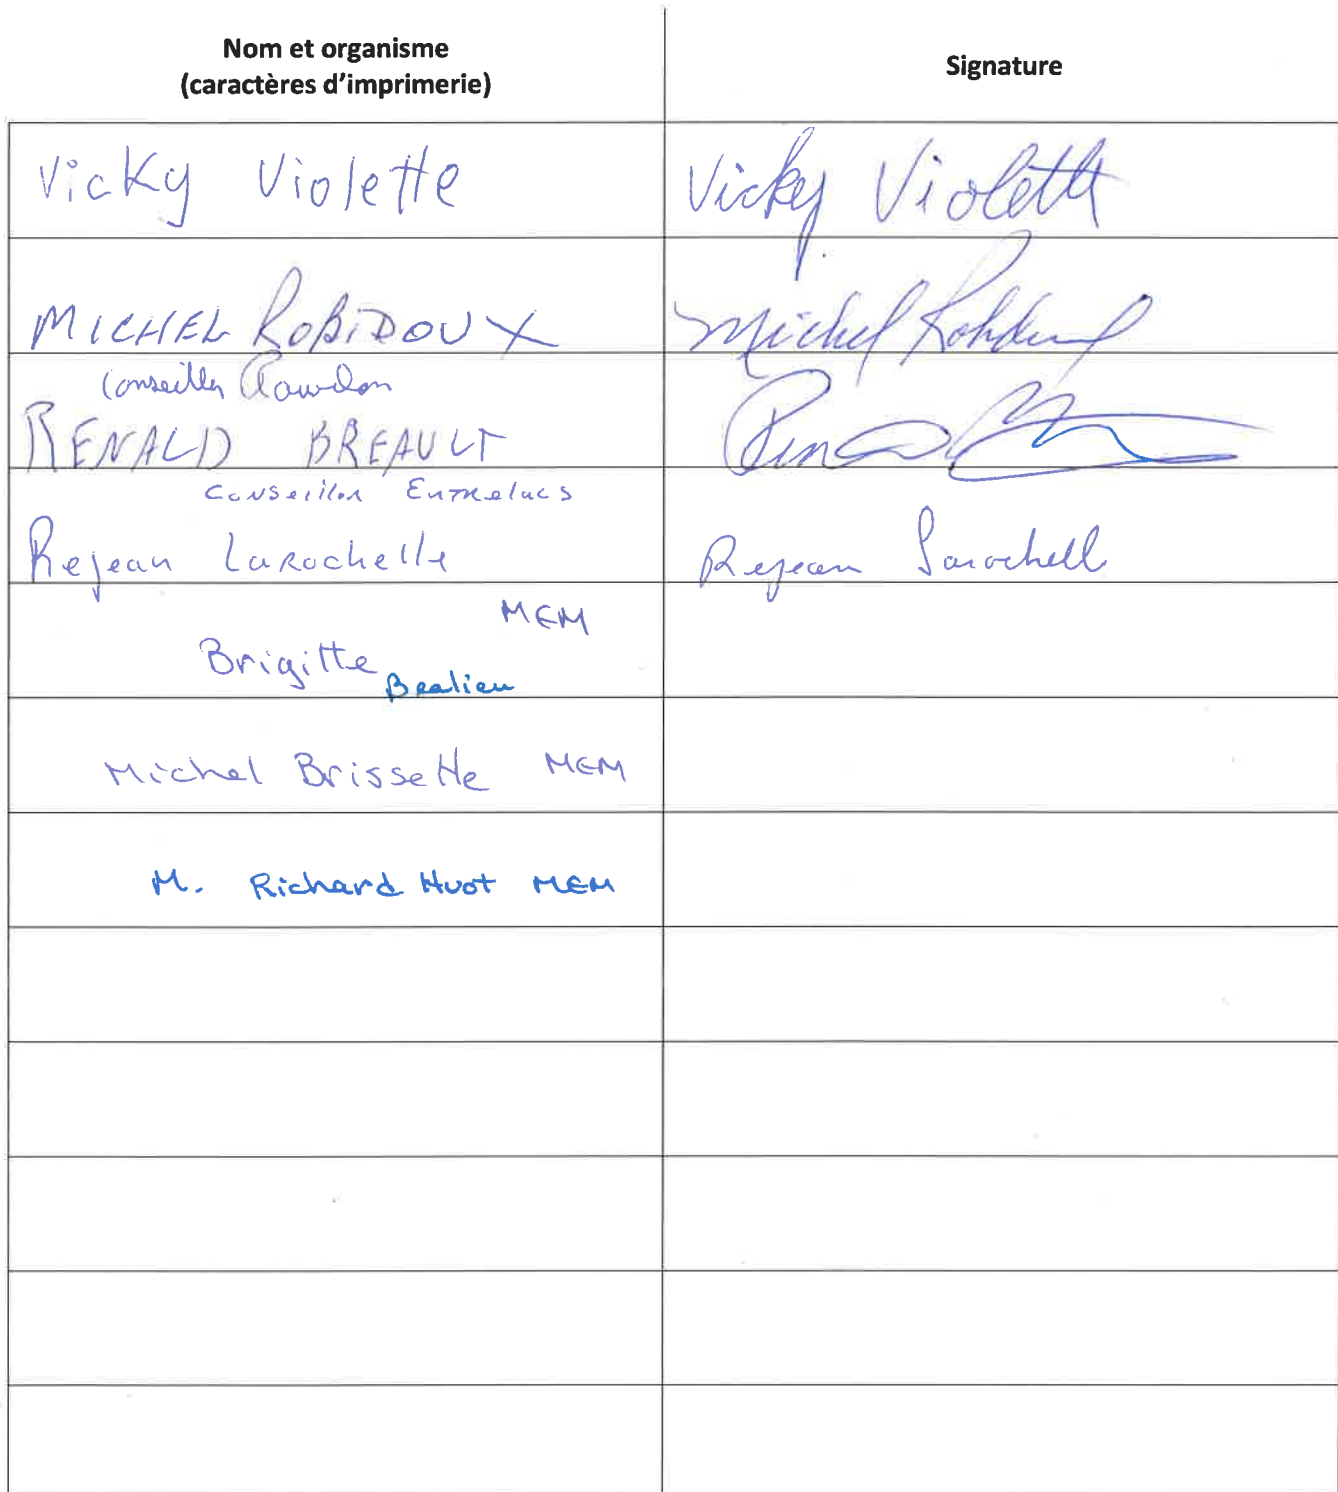 Nom et organisme
(caractères d'imprimerie)
Signature
Vicky Violette
Vicky Violette
MICHEL ROBIDOUX
Michel Robidoux
Conseiller Rawdon
RENALD BREAULT
Conseiller Entrelacs
Rejean Larochelle
Rejean Larochell
MEM
Brigitte Bealieu
Michel Brissette MEM
M. Richard Huot MEM